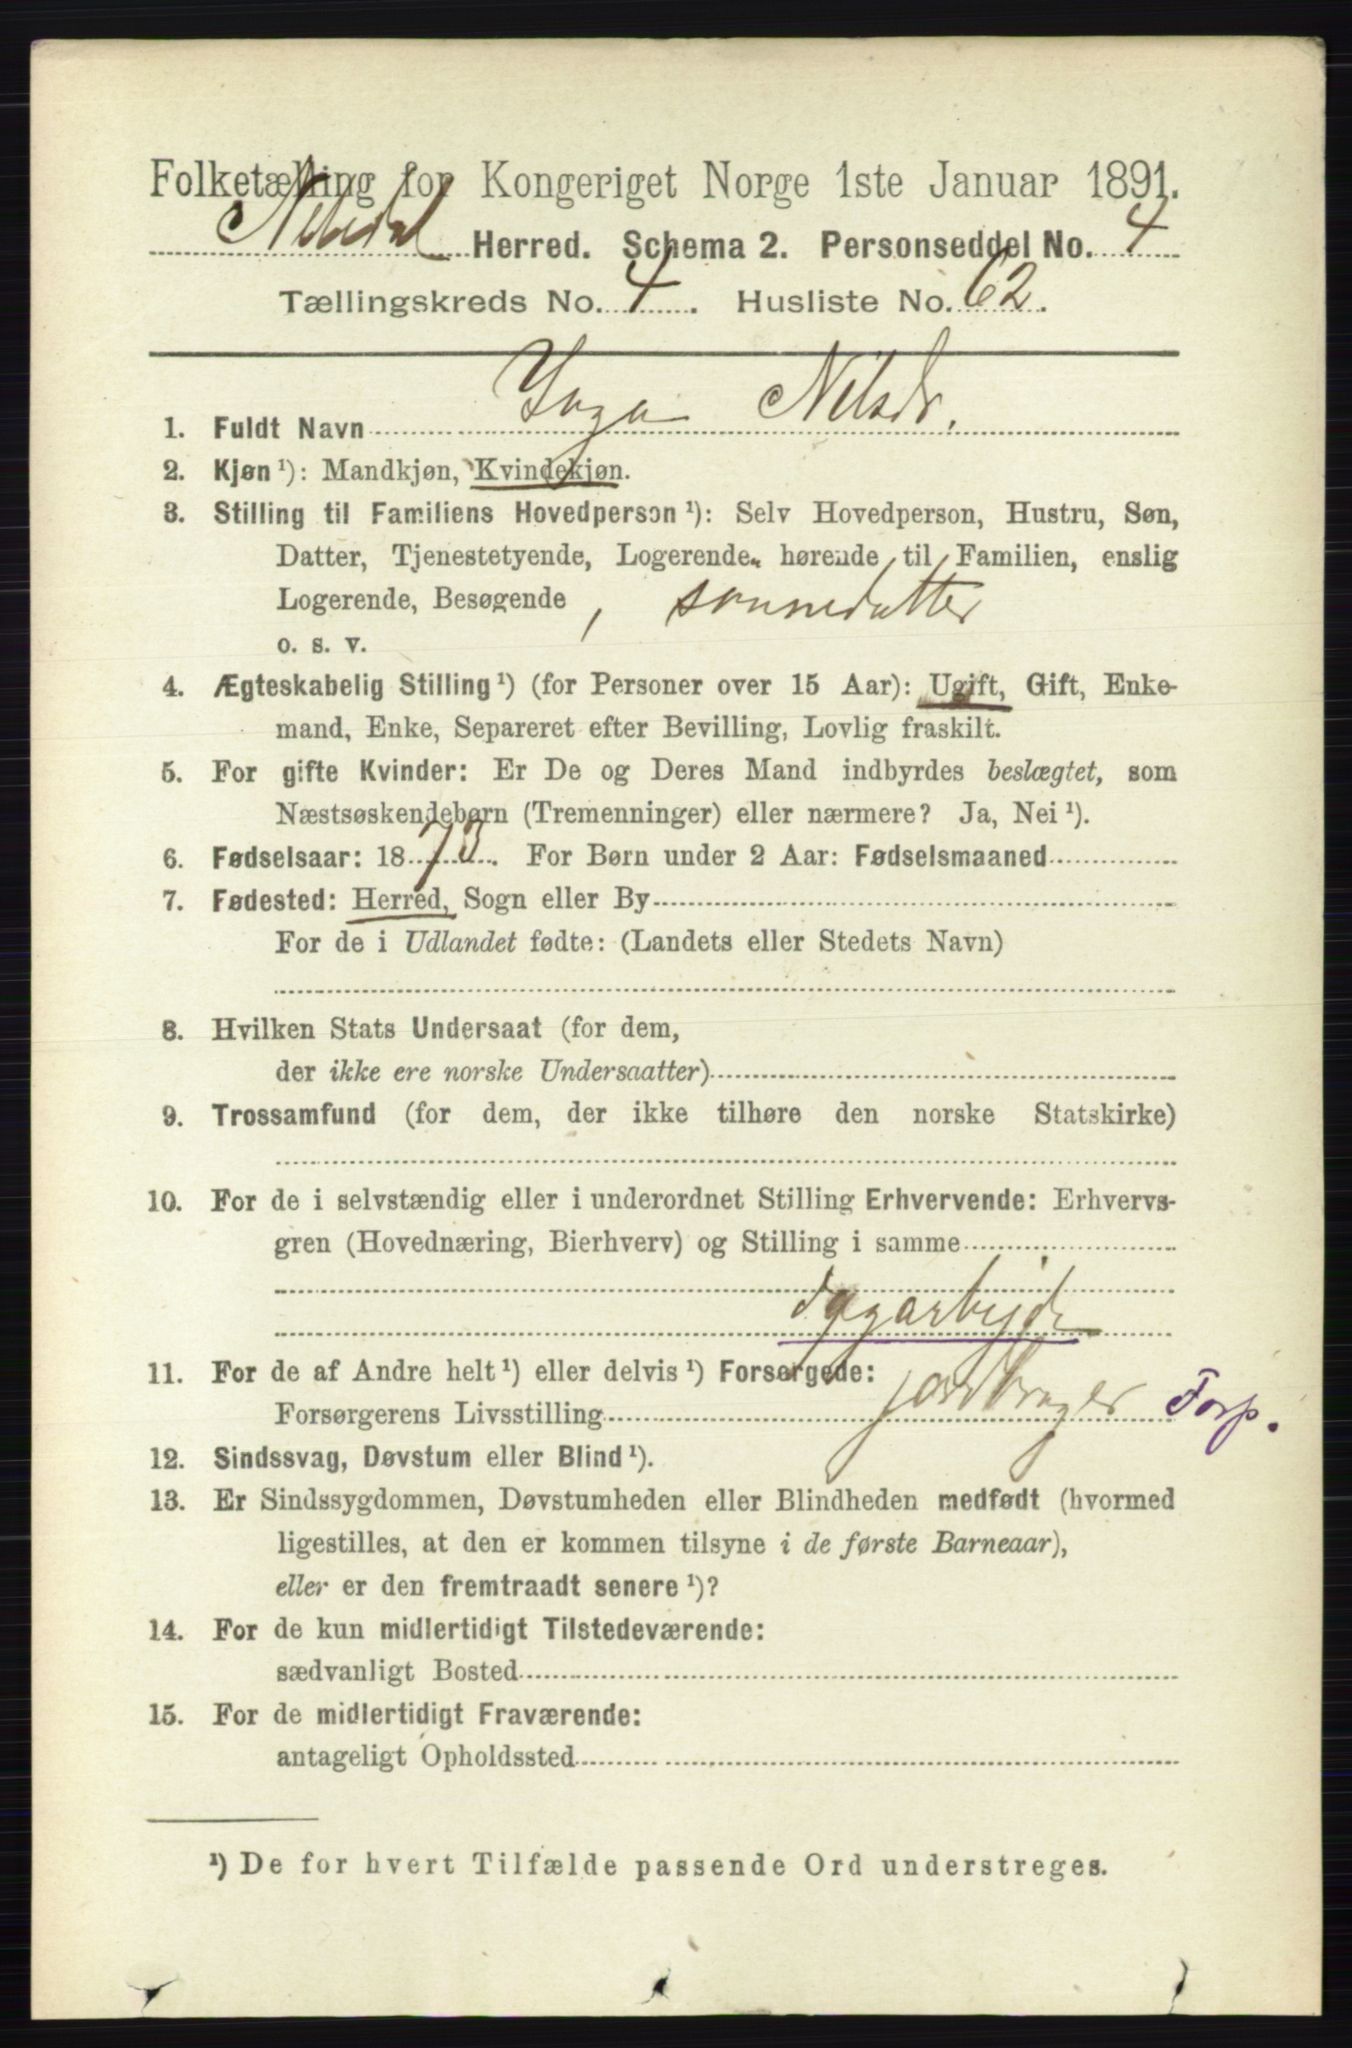 Folketælling for Kongeriget Norge 1ste Januar 1891.
Nitedal Herred. Schema 2. Personseddel No. 4
Tællingskreds No. 4. Husliste No. 62.
1. Fuldt Navn Inga Nilsdr.
2. Kjøn ¹): Mandkjøn, Kvindekjøn.
3. Stilling til Familiens Hovedperson ¹): Selv Hovedperson, Hustru, Søn,
Datter, Tjenestetyende, Logerende hørende til Familien, enslig
Logerende, Besøgende, sønnedatter
o. s. v.
4. Ægteskabelig Stilling ¹) (for Personer over 15 Aar): Ugift, Gift, Enke-
mand, Enke, Separeret efter Bevilling, Lovlig fraskilt.
5. For gifte Kvinder: Er De og Deres Mand indbyrdes beslægtet, som
Næstsøskendebørn (Tremenninger) eller nærmere? Ja, Nei ¹).
6. Fødselsaar: 1873. For Børn under 2 Aar: Fødselsmaaned
7. Fødested: Herred, Sogn eller By
For de i Udlandet fødte: (Landets eller Stedets Navn)
8. Hvilken Stats Undersaat (for dem,
der ikke ere norske Undersaatter)
9. Trossamfund (for dem, der ikke tilhøre den norske Statskirke)
10. For de i selvstændig eller i underordnet Stilling Erhvervende: Erhvervs-
gren (Hovednæring, Bierhverv) og Stilling i samme
dagarbejde
11. For de af Andre helt ¹) eller delvis ¹) Forsørgede:
Forsørgerens Livsstilling jordbruger Forp.
12. Sindssvag, Døvstum eller Blind ¹).
13. Er Sindssygdommen, Døvstumheden eller Blindheden medfødt (hvormed
ligestilles, at den er kommen tilsyne i de første Barneaar),
eller er den fremtraadt senere ¹)?
14. For de kun midlertidigt Tilstedeværende:
sædvanligt Bosted
15. For de midlertidigt Fraværende:
antageligt Opholdssted
¹) De for hvert Tilfælde passende Ord understreges.